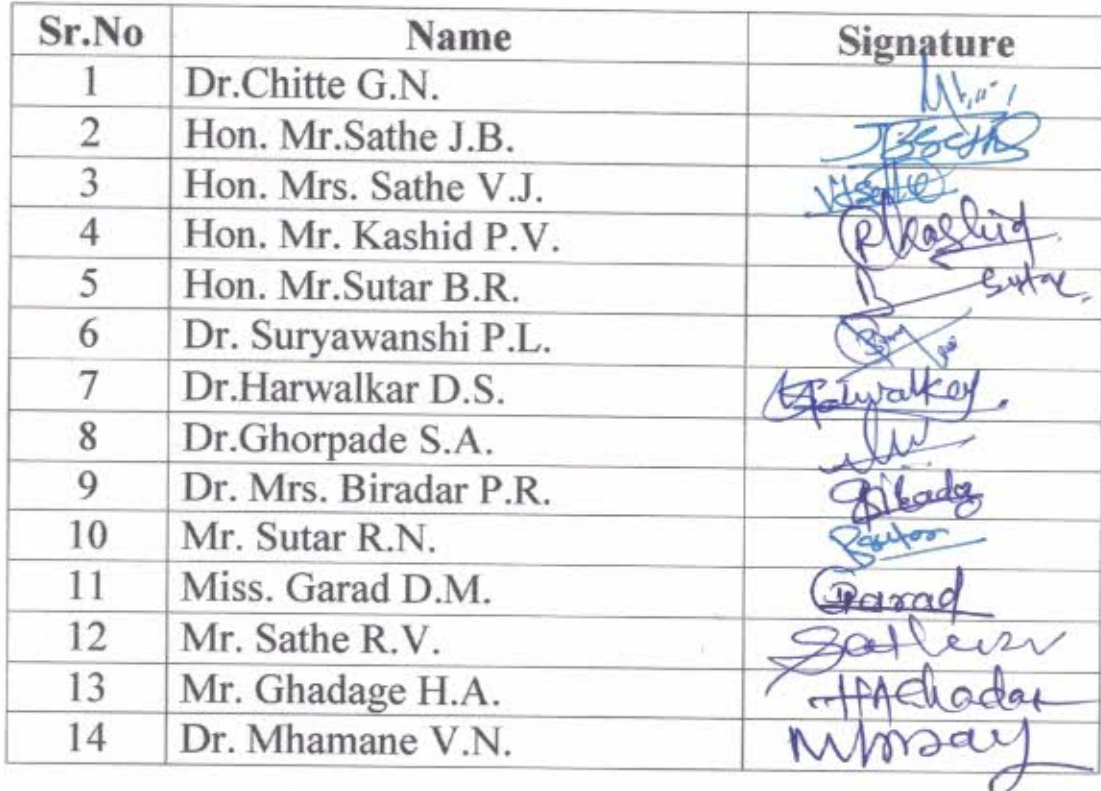 Sr.No Name Signature
1 Dr.Chitte G.N.
2 Hon. Mr.Sathe J.B. JBSathe
3 Hon. Mrs. Sathe V.J. VJSathe
4 Hon. Mr. Kashid P.V. PKashid
5 Hon. Mr.Sutar B.R. Sutar
6 Dr. Suryawanshi P.L.
7 Dr.Harwalkar D.S.
8 Dr.Ghorpade S.A.
9 Dr. Mrs. Biradar P.R.
10 Mr. Sutar R.N.
11 Miss. Garad D.M. Garad
12 Mr. Sathe R.V. Sathe RV
13 Mr. Ghadage H.A.
14 Dr. Mhamane V.N.